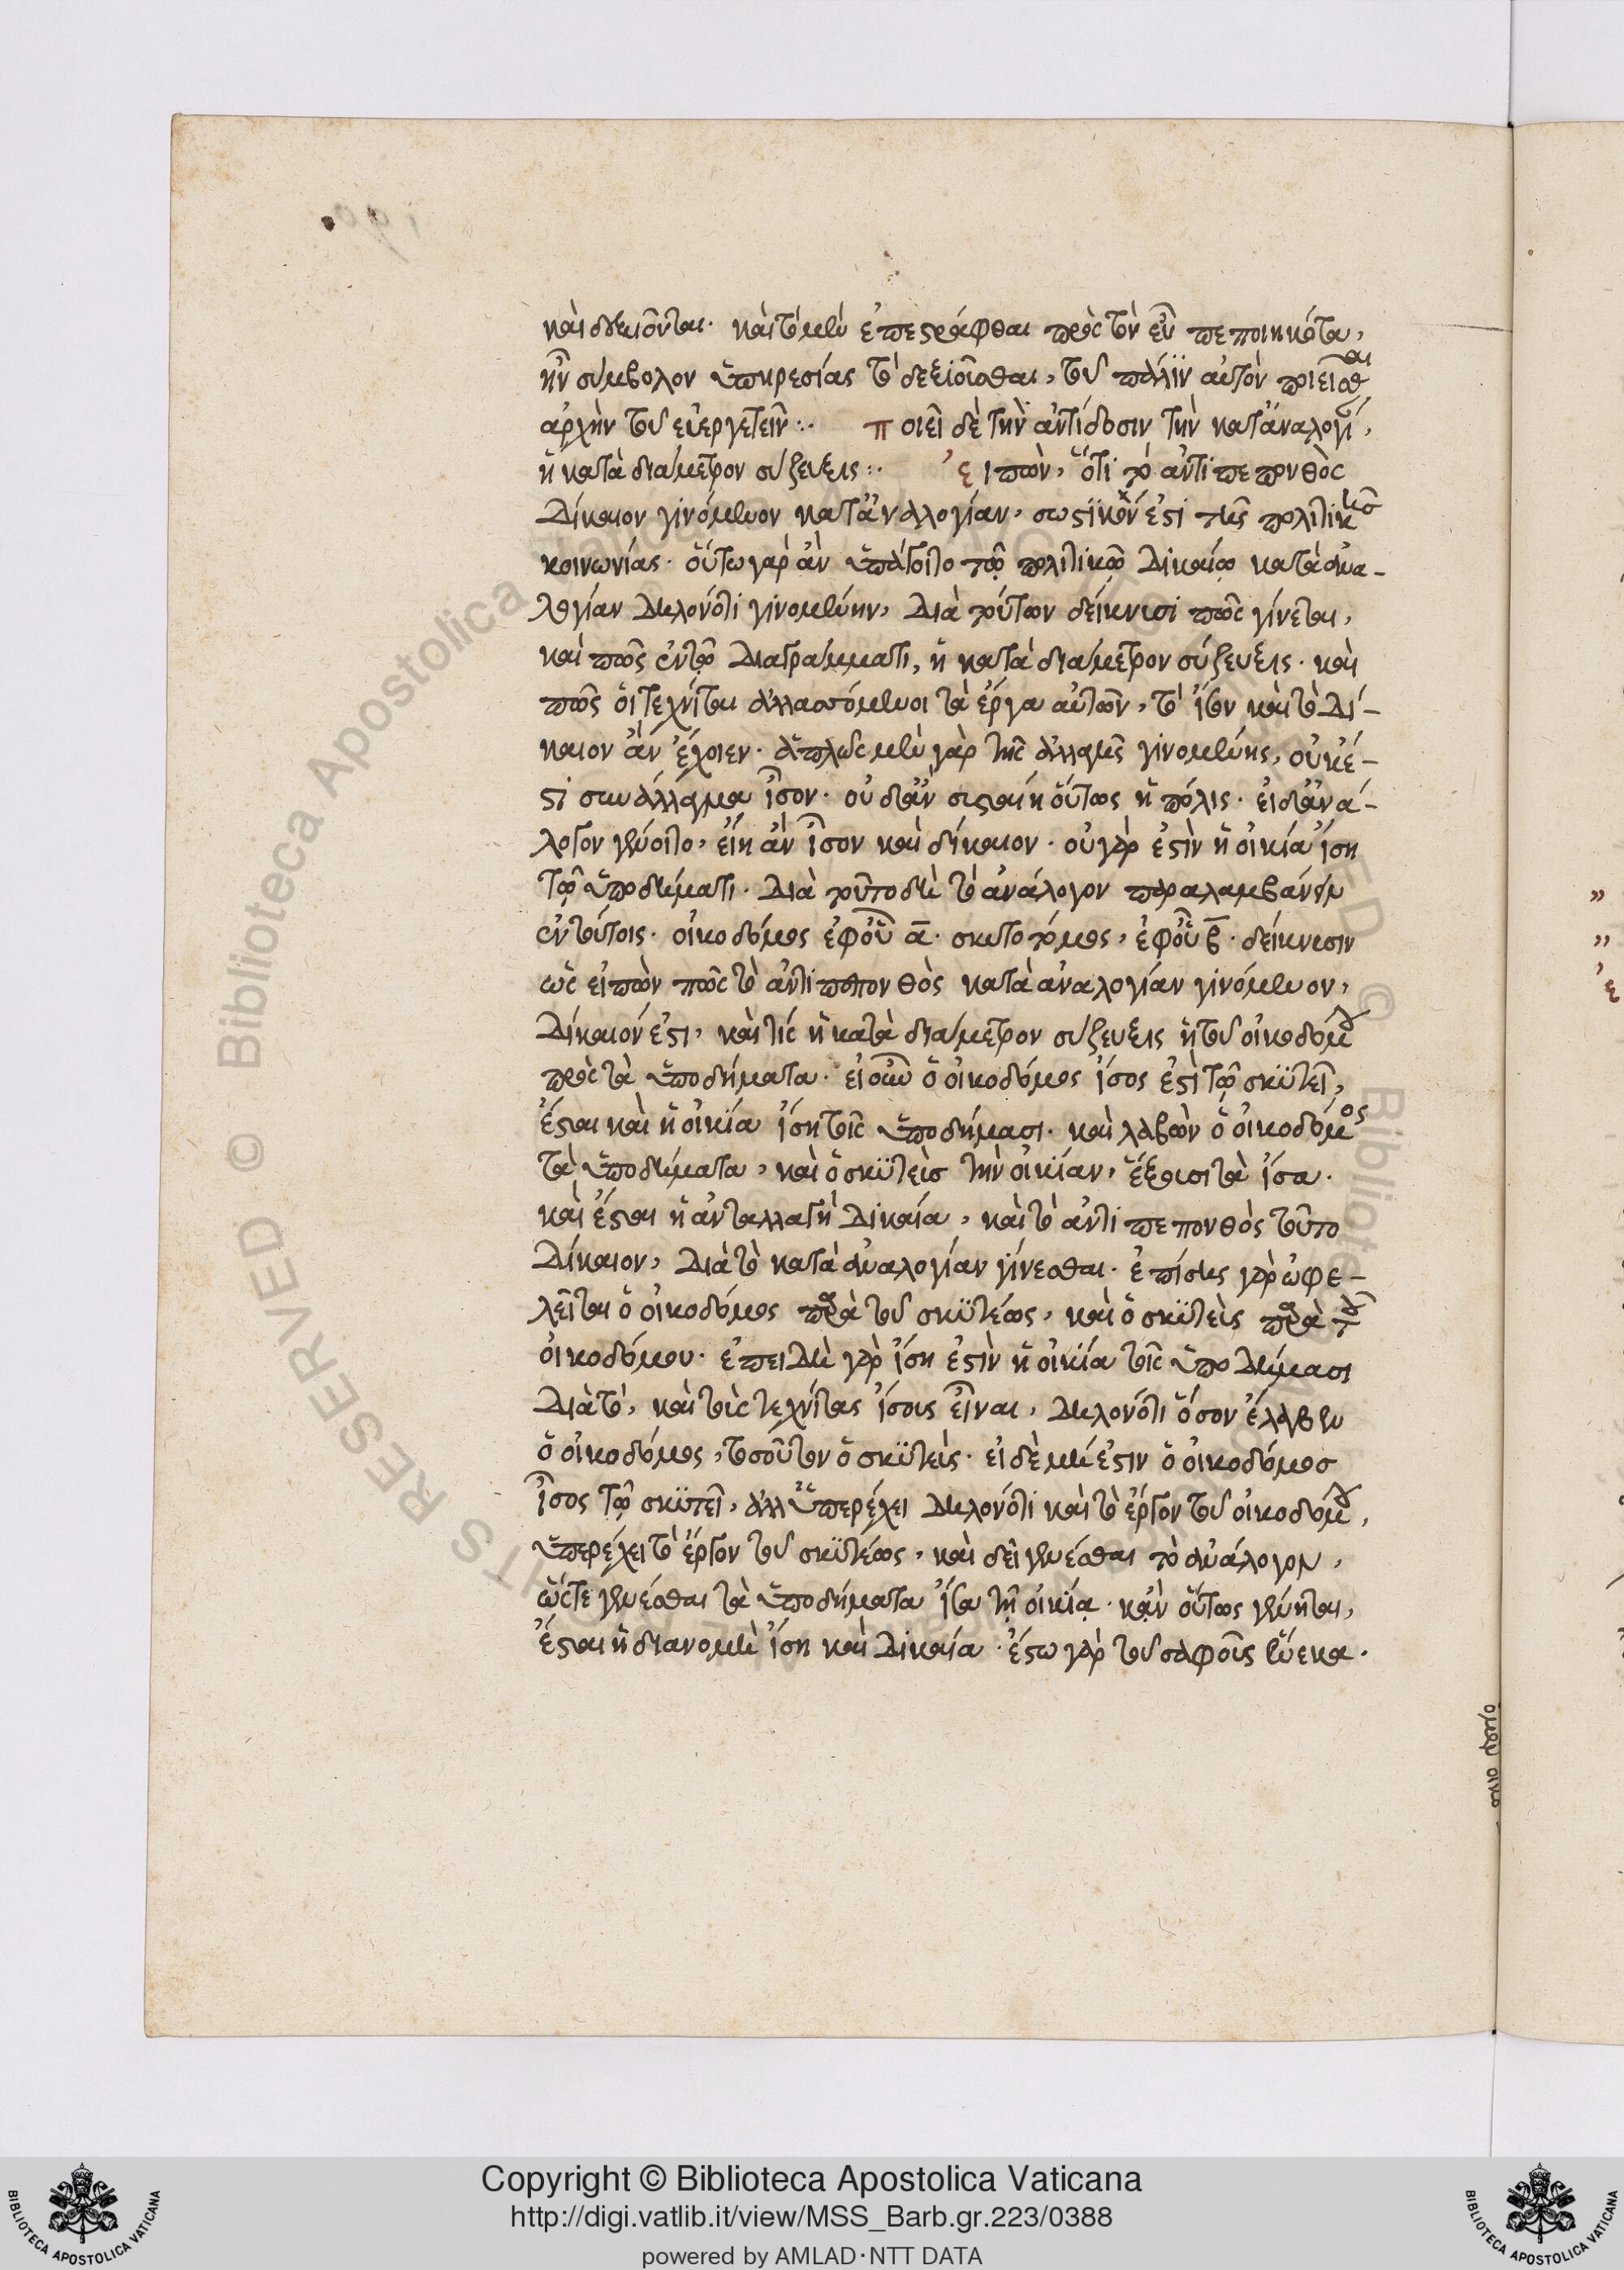 καὶ δέχονται. καὶ τὸ μὲν ἐπεστράφθαι πρὸς τὸν εὖ πεποιηκότα,
ἦν σύμβολον ὑπηρεσίας τὸ δεξιοῦσθαι, τοῦ πάλιν αὐτὸν ποιεῖσθαι
ἀρχὴν τοῦ εὐεργετεῖν :· ποιεῖ δὲ τὴν ἀντίδοσιν τὴν κατ' ἀναλογίαν,
ἡ κατὰ διάμετρον σύζευξις :· εἰπὼν, ὅτι τὸ ἀντιπεπονθὸς
δίκαιον γινόμενον κατ' ἀναλογίαν, σωστικόν ἐστι τῆς πολιτικῆς
κοινωνίας. οὕτω γὰρ ἂν τῷ πολιτικῷ δικαίῳ κατὰ ἀνα-
λογίαν δηλονότι γινομένην, διὰ τούτων δείκνυσι πῶς γίνεται,
καὶ πῶς ἐν τῷ διαγράμματι, ἡ κατὰ διάμετρον σύζευξις. καὶ
πῶς οἱ τεχνῖται ἀλλασσόμενοι τὰ ἔργα αὐτῶν, τὸ ἴσον καὶ τὸ δί-
καιον ἂν ἔχοιεν. ἁπλῶς μὲν γὰρ τῆς ἀλλαγῆς γινομένης, οὐκ ἔ-
στι συνάλλαγμα ἴσον. οὐδ' ἂν συσταίη οὕτως ἡ πόλις. εἰ δ' ἂν ἀ-
νάλογον γένοιτο, εἴη ἂν ἴσον καὶ δίκαιον. οὐ γάρ ἐστιν ἡ οἰκία ἴση
τῷ ὑποδήματι. διὰ τοῦτο δὴ τὸ ἀνάλογον παραλαμβάνειν
ἐν τούτοις. οἰκοδόμος ἐφ' οὗ α. σκυτοτόμος, ἐφ' οὗ β. δείκνυσιν
ὡς εἰπὼν πῶς τὸ ἀντιπεπονθὸς κατὰ ἀναλογίαν γινόμενον,
δίκαιόν ἐστι, καὶ τίς ἡ κατὰ διάμετρον σύζευξις ἡ τοῦ οἰκοδόμου
πρὸς τὰ ὑποδήματα. εἰ οὖν ὁ οἰκοδόμος ἴσος ἐστὶ τῷ σκυτεῖ,
ἔσται καὶ ἡ οἰκία ἴση τοῖς ὑποδήμασι. καὶ λαβὼν ὁ οἰκοδόμος
τὰ ὑποδήματα, καὶ ὁ σκυτεὺς τὴν οἰκίαν, ἕξουσι τὰ ἴσα.
καὶ ἔσται ἡ ἀνταλλαγὴ δικαία, καὶ τὸ ἀντιπεπονθὸς τοῦτο
δίκαιον, διὰ τὸ κατὰ ἀναλογίαν γίνεσθαι. ἐπίσης γὰρ ὠφε-
λεῖται ὁ οἰκοδόμος παρὰ τοῦ σκυτέως, καὶ ὁ σκυτεὺς παρὰ τοῦ
οἰκοδόμου. ἐπειδὴ γὰρ ἴση ἐστὶν ἡ οἰκία τοῖς ὑποδήμασι
διὰ τὸ, καὶ τοὺς τεχνίτας ἴσους εἶναι, δηλονότι ὅσον ἔλαβεν
ὁ οἰκοδόμος, τοσοῦτον ὁ σκυτεύς. εἰ δὲ μή ἐστιν ὁ οἰκοδόμος
ἴσος τῷ σκυτεῖ, ἀλλ' ὑπερέχει δηλονότι καὶ τὸ ἔργον τοῦ οἰκοδόμου,
ὑπερέχει τὸ ἔργον τοῦ σκυτέως, καὶ δεῖ γενέσθαι τὸ ἀνάλογον,
ὥστε γενέσθαι τὰ ὑποδήματα ἴσα τῇ οἰκίᾳ. κἂν οὕτως γένηται,
ἔσται ἡ διανομὴ ἴση καὶ δικαία. ἔστω γὰρ τοῦ σαφοῦς ἕνεκα.
Copyright © Biblioteca Apostolica Vaticana
http://digi.vatlib.it/view/MSS_Barb.gr.223/0388
powered by AMLAD·NTT DATA